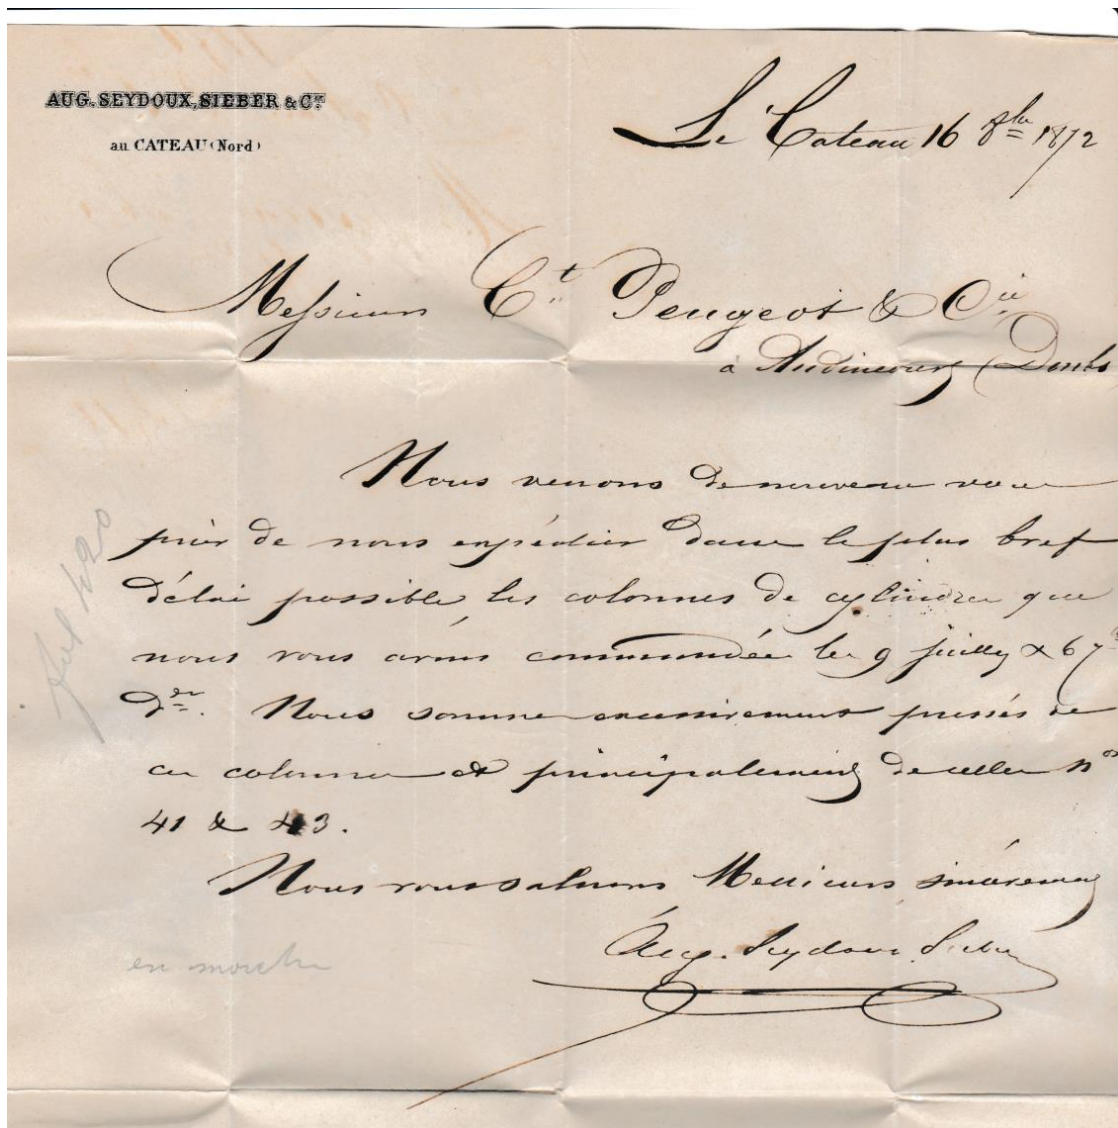 AUG. SEYDOUX, SIEBER & Cie
au CATEAU (Nord)
Le Cateau 16 8bre 1872
Messieurs Ct Peugeot & Cie
à Audincourt (Doubs
Nous venons de nouveau vous
prier de nous expédier dans le plus bref
délai possible les colonnes de cylindres que
nous vous avons commandées le 9 juillet & 6 7bre
der. Nous sommes excessivement pressés de
ces colonnes et principalement de celles nos
41 & 43.
Nous vous saluons Messieurs sincèrement
Aug. Seydoux Sieber
en marche